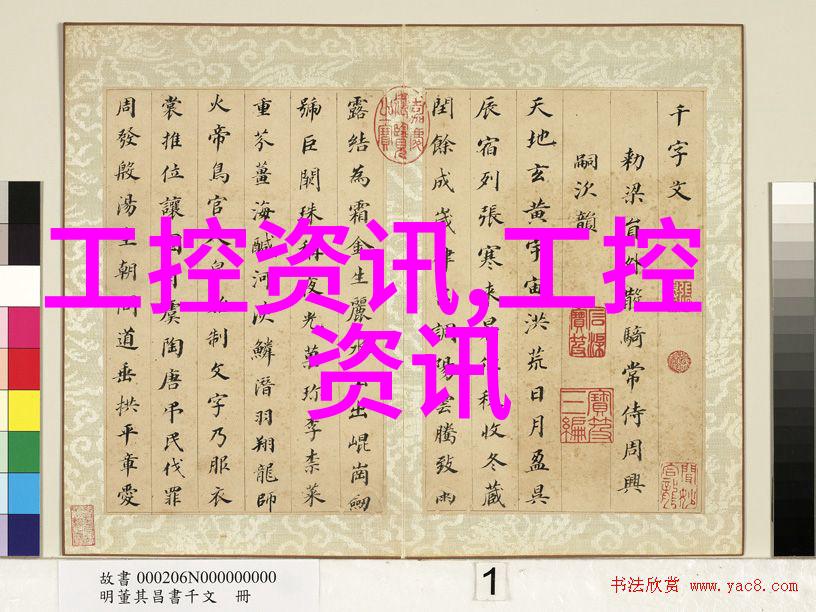 千字文
勑梁員外散騎常侍周興
嗣次韻
天地玄黃宇宙洪荒日月盈昃
辰宿列張寒来秋收冬藏
閏餘成歲律調陽雲騰致雨
露結為霜金生麗水出崐岡劒
號巨闕珠夜光菓珍李柰菜
重芥薑海鹹河淡鱗潛羽翔龍師
火帝鳥官人皇始制文字乃服衣
裳推位讓有虞陶唐弔民伐罪
周發殷湯坐朝問道垂拱平章愛
工控资讯,工控
资讯
故書 000206N000000000
明董其昌書千文 冊
1
书法欣赏 www.yac8.com